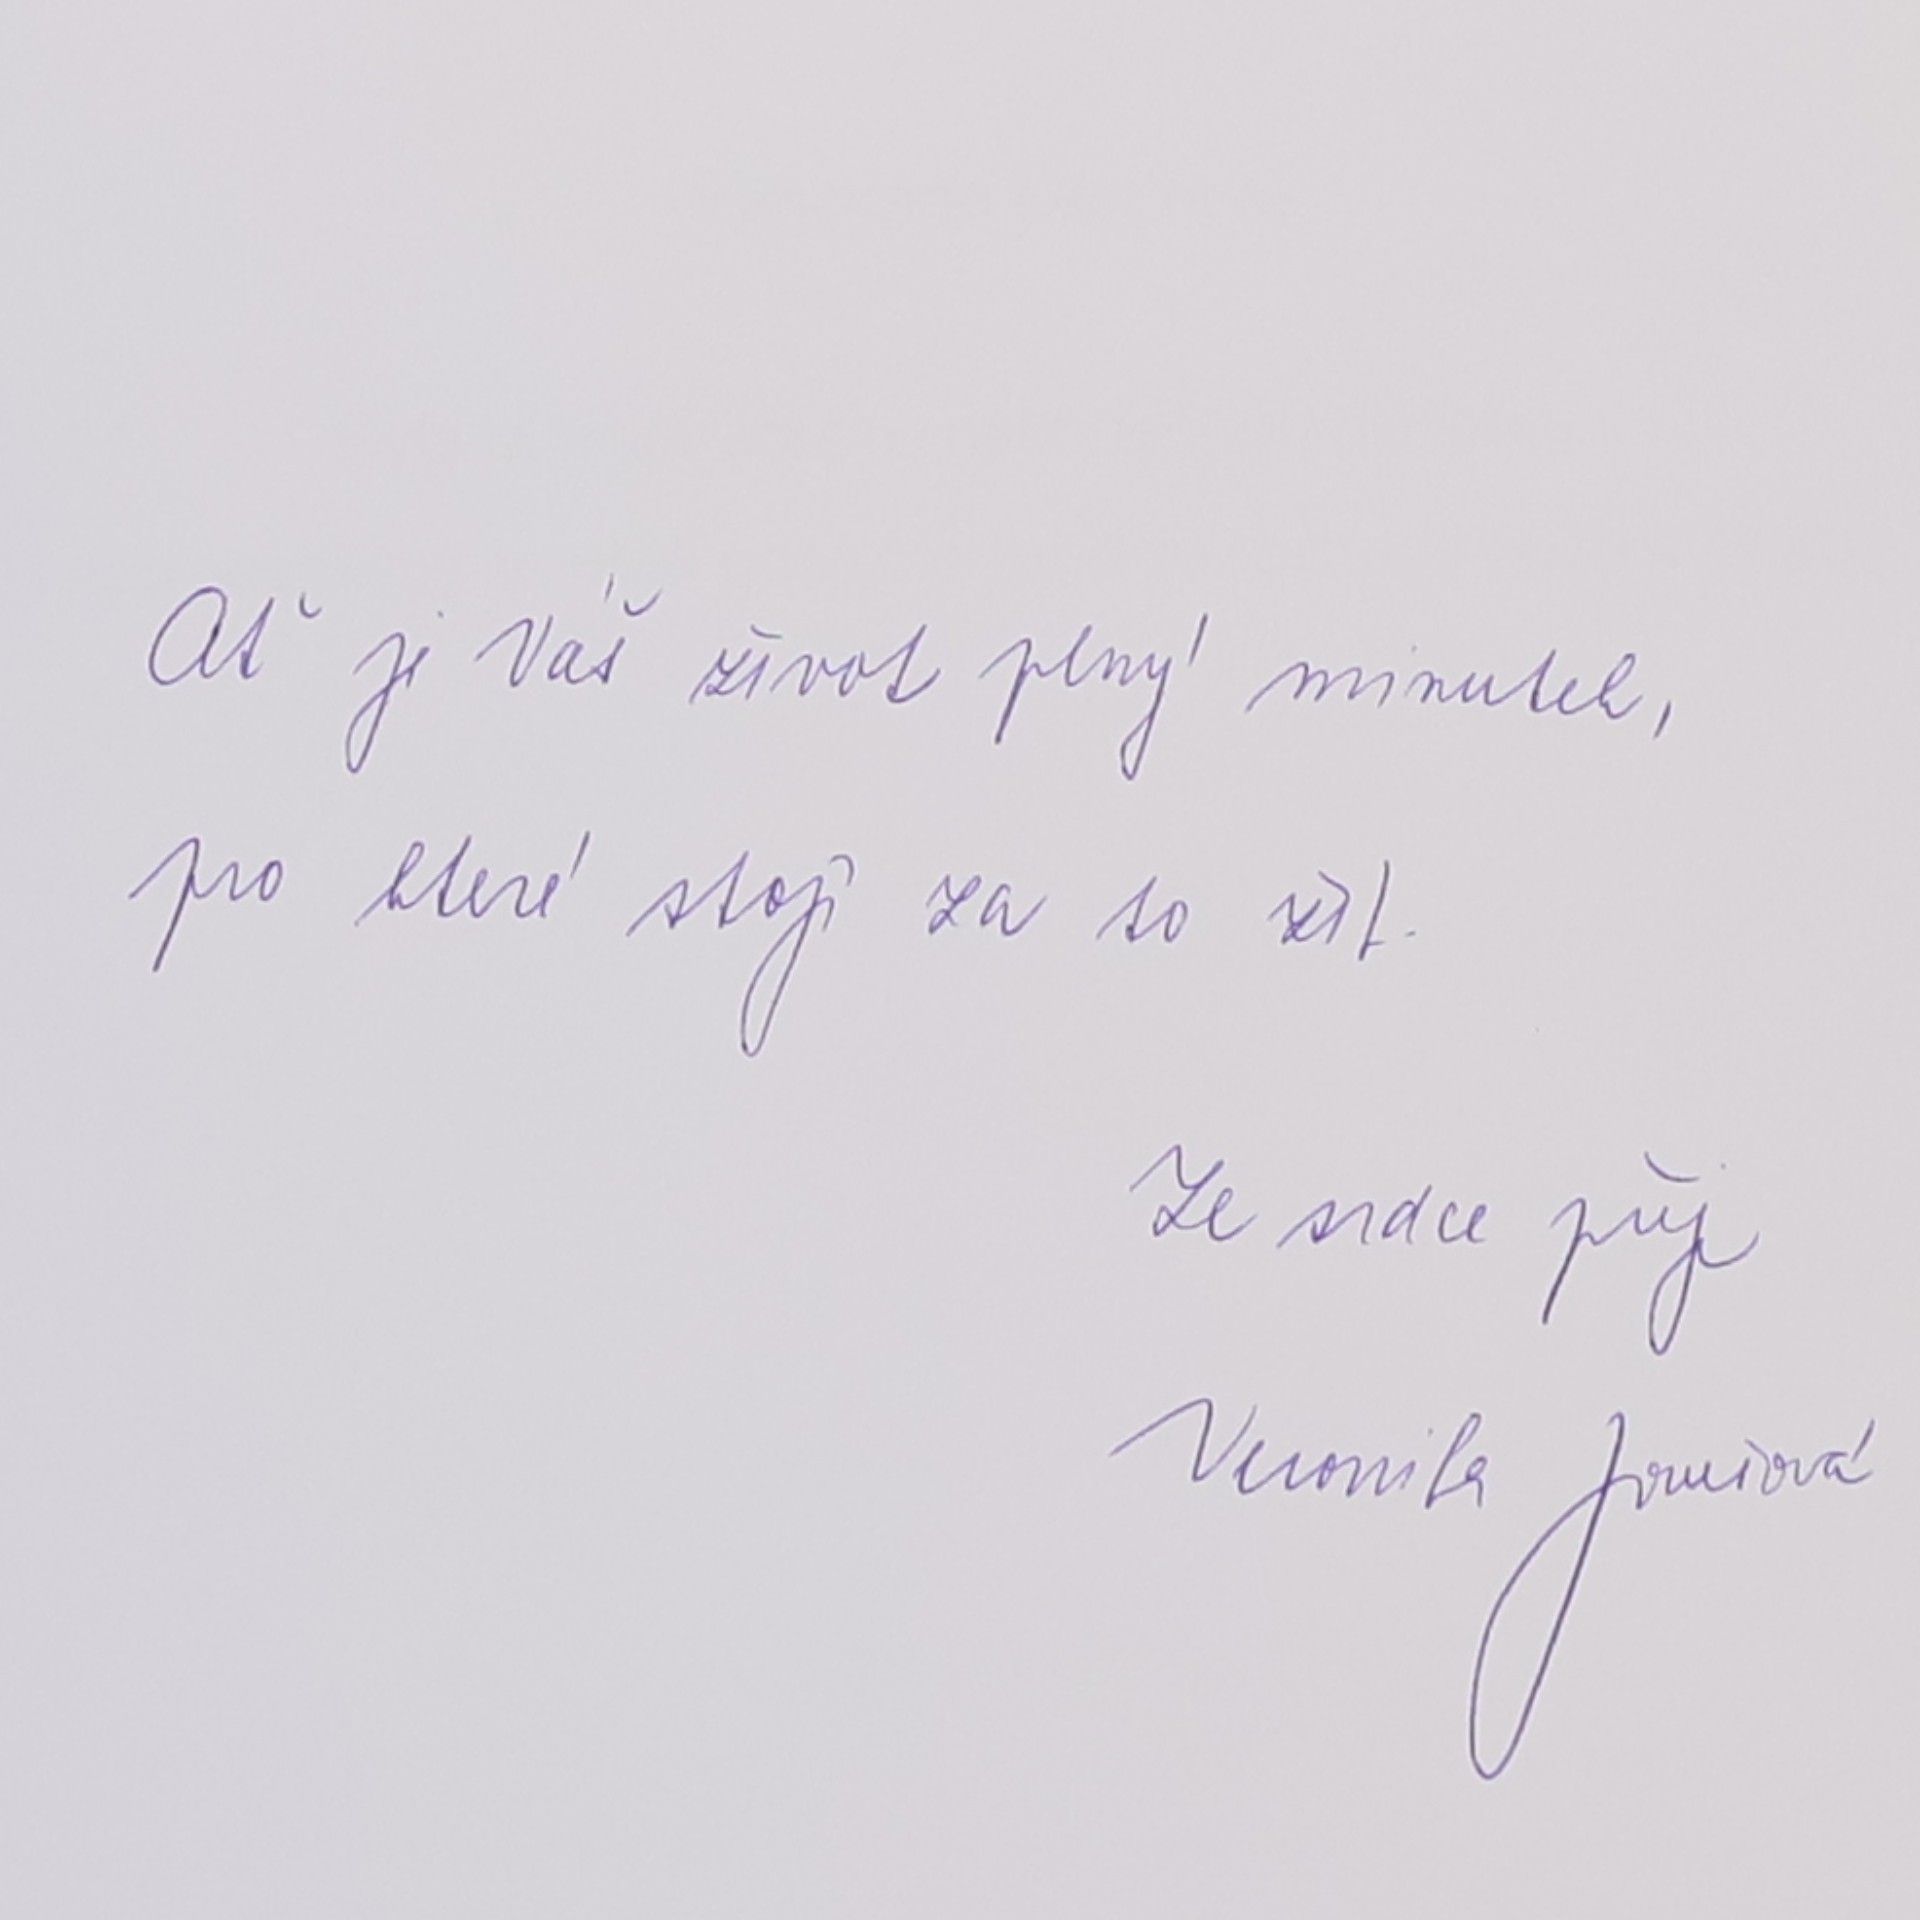 Ať je Váš život plný minutek,
pro které stojí za to žít.
Ze srdce přeje
Veronika